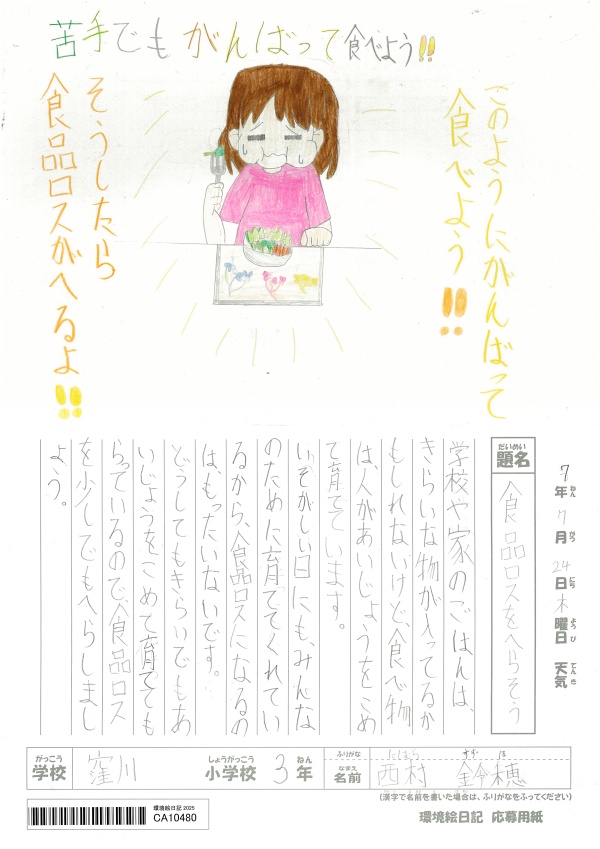 苦手でもがんばって食べよう!!
このようにがんばって
食べよう!!
そうしたら
食品ロスがへるよ!!
7年 7月 24日 木曜日 天気
ねん がつ にち ようび てんき
だいめい
題名 食品ロスをへらそう
学校や家のごはんは、
きらいな物が入ってるか
もしれないけど、食べ物
は、人があいじょうをこめ
て育てています。
いそがしい日にも、みんな
のために育ててくれてい
るから、食品ロスになるの
は、もったいないです。
どうしてもきらいでもあ
いじょうをこめて育てても
らっているので、食品ロス
を少しでもへらしまし
ょう。
がっこう しょうがっこう ねん
学校 窪川 小学校 3年
ふりがな にしむら すず ほ
なまえ
名前 西村 鈴穂
(漢字で名前を書いた場合は、ふりがなをふってください)
環境絵日記 2025
CA10480
環境絵日記 応募用紙